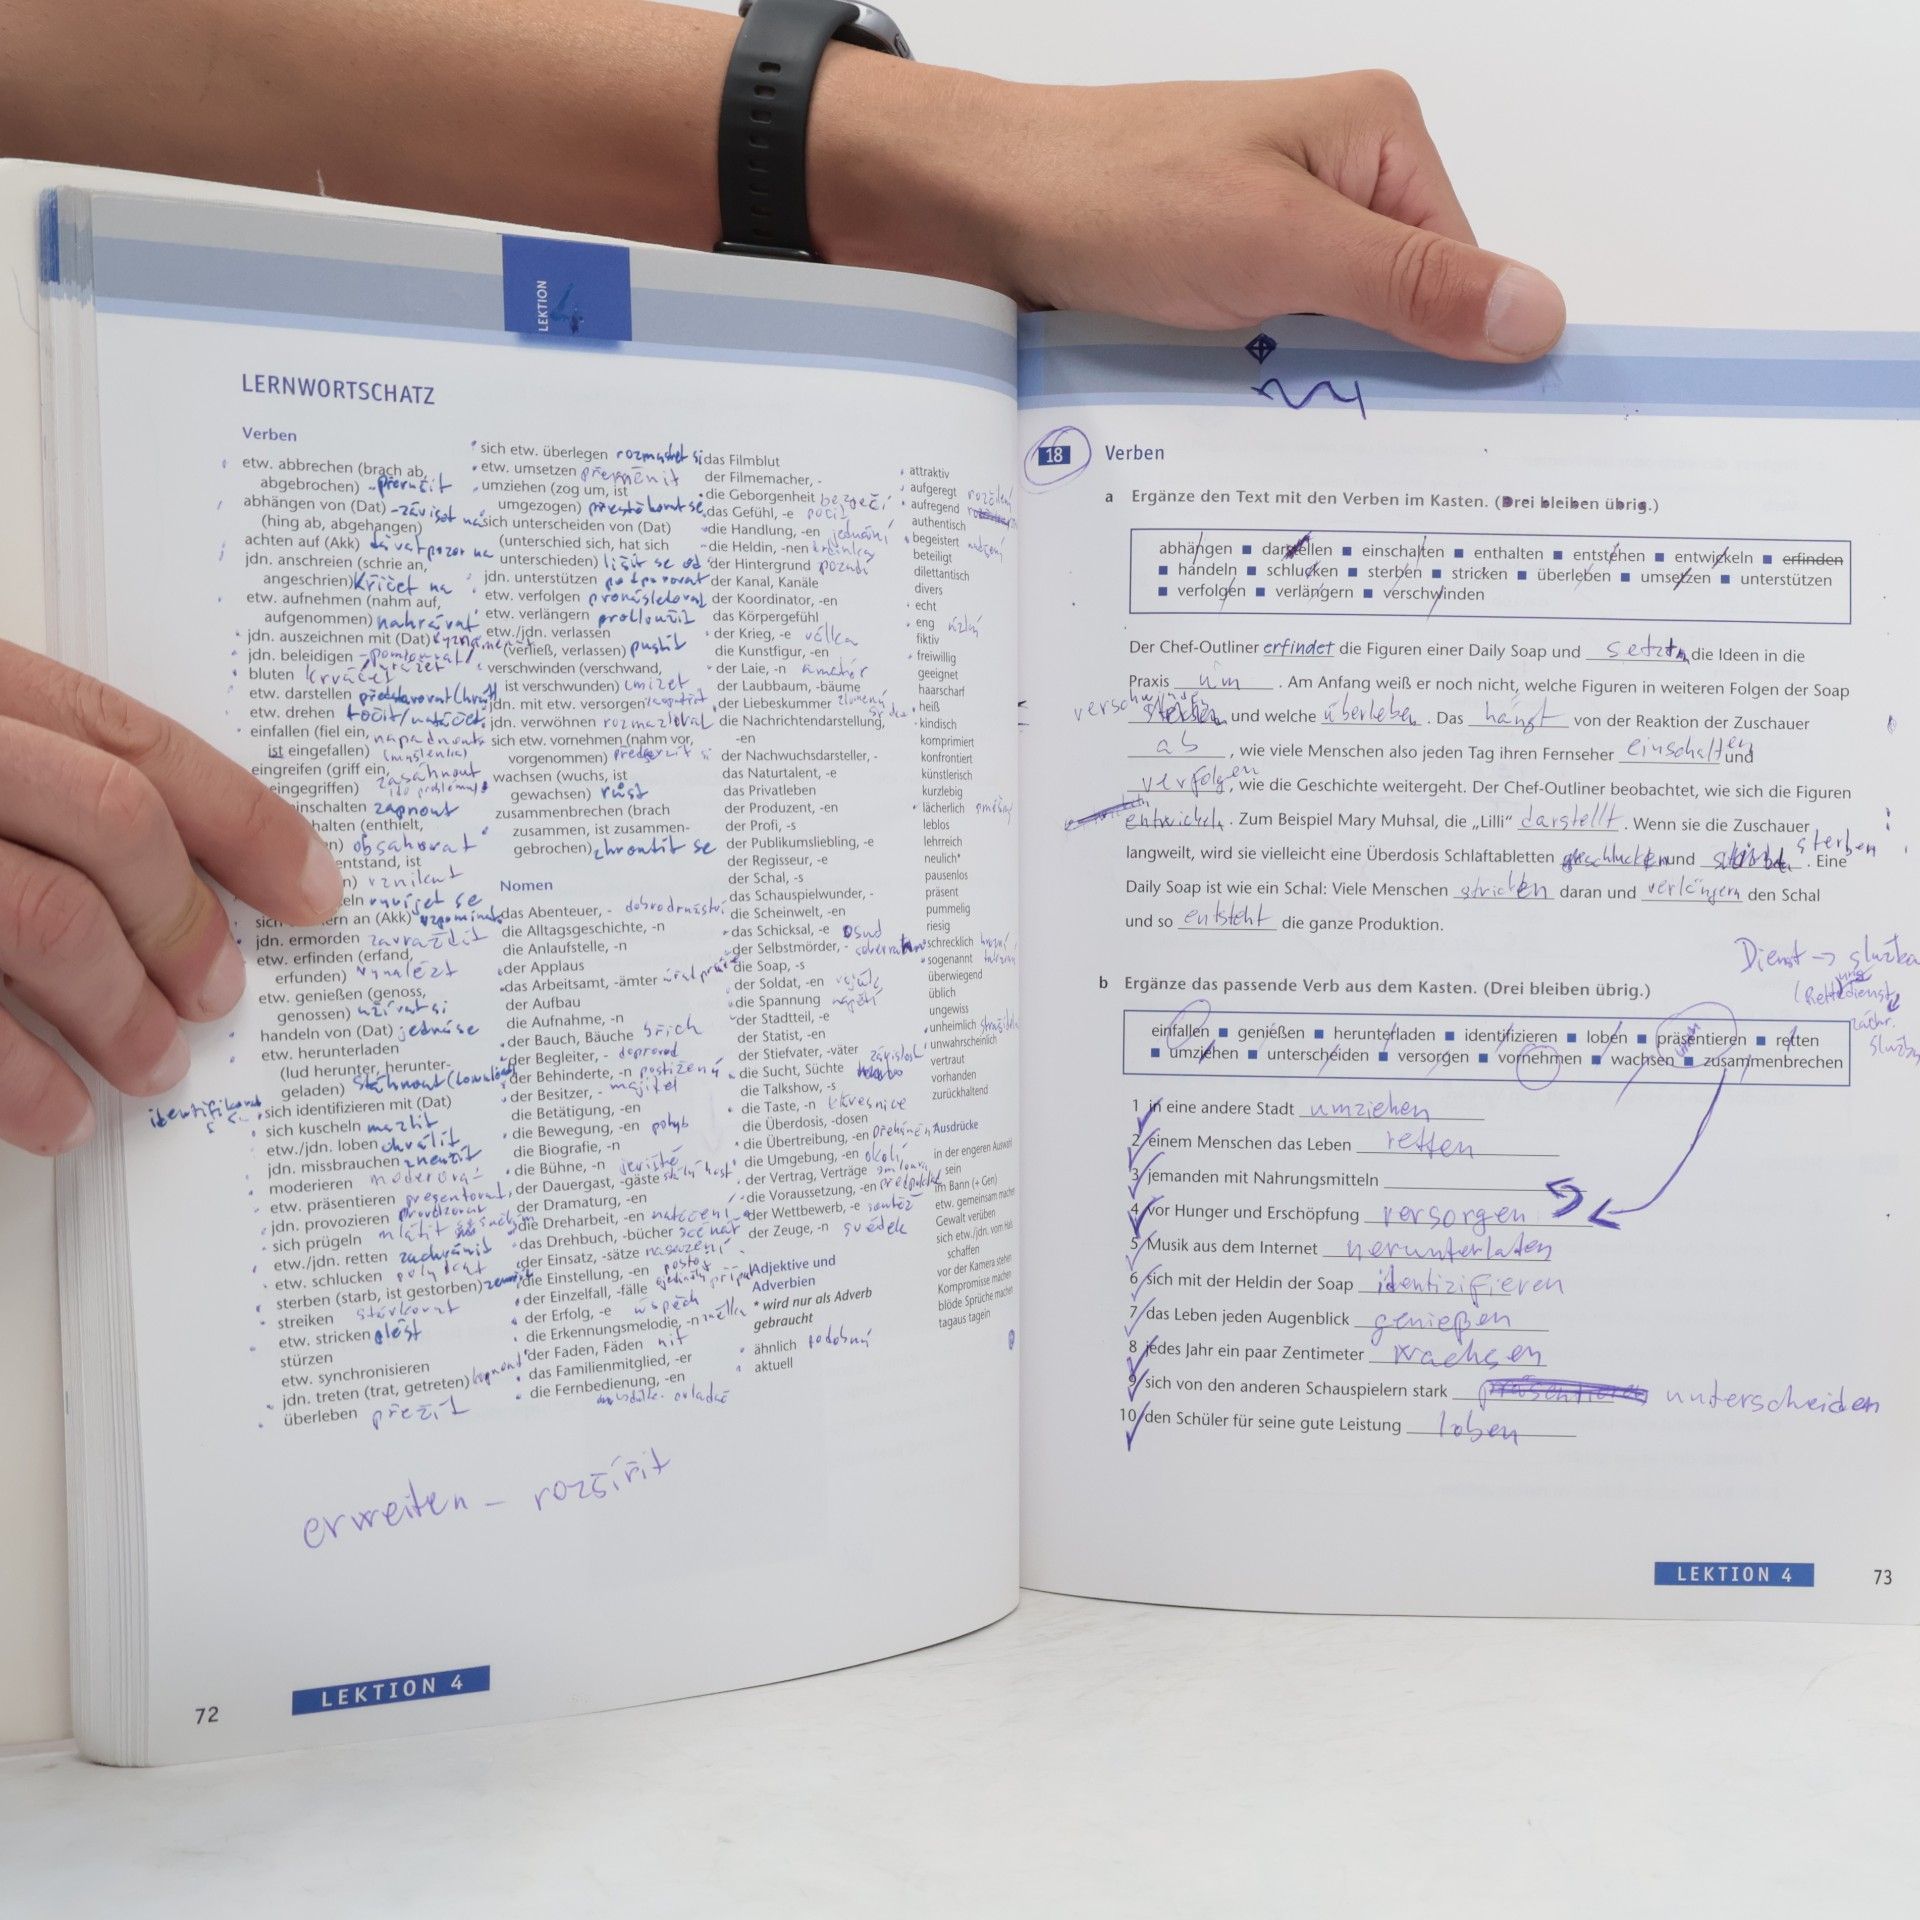 LEKTION
4
LERNWORTSCHATZ
Verben
etw. abbrechen (brach ab,
abgebrochen) přerušit
abhängen von (Dat) - záviset na
(hing ab, abgehangen)
achten auf (Akk) dávat pozor na
jdn. anschreien (schrie an,
angeschrien) křičet na
etw. aufnehmen (nahm auf,
aufgenommen) nahrávat
jdn. auszeichnen mit (Dat)
jdn. beleidigen
bluten krvácet
etw. darstellen
etw. drehen točit/natáčet
einfallen (fiel ein,
ist eingefallen) (myšlenka)
eingreifen (griff ein, zasáhnout
eingegriffen)
einschalten zapnout
halten (enthielt,
obsahovat
entstand, ist
vznikat
eln vyvíjet se
sich ern an (Akk) vzpomínat
jdn. ermorden zavraždit
etw. erfinden (erfand,
erfunden) vynalézt
etw. genießen (genoss,
genossen) užívat si
handeln von (Dat) jedná se
etw. herunterladen
(lud herunter, herunter-
geladen) stáhnout (download)
sich identifizieren mit (Dat)
sich kuscheln mazlit
etw./jdn. loben chválit
jdn. missbrauchen zneužít
moderieren moderovat
etw. präsentieren presentovat
jdn. provozieren provokovat
sich prügeln mlátit
etw./jdn. retten zachránit
etw. schlucken polykat
sterben (starb, ist gestorben) zemřít
streiken stávkovat
etw. stricken plést
stürzen
etw. synchronisieren
jdn. treten (trat, getreten) kopnout
überleben přežít
sich etw. überlegen rozmyslet si
etw. umsetzen přeměnit
umziehen (zog um, ist
umgezogen) přestěhovat se
sich unterscheiden von (Dat)
(unterschied sich, hat sich
unterschieden) lišit se od
jdn. unterstützen podporovat
etw. verfolgen pronásledovat
etw. verlängern prodloužit
etw./jdn. verlassen
(verließ, verlassen) pustit
verschwinden (verschwand,
ist verschwunden) zmizet
jdn. mit etw. versorgen
jdn. verwöhnen rozmazlovat
sich etw. vornehmen (nahm vor,
vorgenommen) předsevzít si
wachsen (wuchs, ist
gewachsen) růst
zusammenbrechen (brach
zusammen, ist zusammen-
gebrochen) zhroutit se
Nomen
das Abenteuer, - dobrodružství
die Alltagsgeschichte, -n
die Anlaufstelle, -n
der Applaus
das Arbeitsamt, -ämter úřad práce
der Aufbau
die Aufnahme, -n
der Bauch, Bäuche břich
der Begleiter, - doprovod
der Behinderte, -n postižený
der Besitzer, - majitel
die Betätigung, -en
die Bewegung, -en pohyb
die Biografie, -n
die Bühne, -n jeviště
der Dauergast, -gäste stálý host
der Dramaturg, -en
die Dreharbeit, -en natáčení
das Drehbuch, -bücher scénář
der Einsatz, -sätze nasazení
die Einstellung, -en postoj
der Einzelfall, -fälle
der Erfolg, -e úspěch
die Erkennungsmelodie, -n znělka
der Faden, Fäden nit
das Familienmitglied, -er
die Fernbedienung, -en
das Filmblut
der Filmemacher, -
die Geborgenheit bezpečí
das Gefühl, -e pocit
die Handlung, -en jednání
die Heldin, -nen hrdinka
der Hintergrund pozadí
der Kanal, Kanäle
der Koordinator, -en
das Körpergefühl
der Krieg, -e válka
die Kunstfigur, -en
der Laie, -n amatér
der Laubbaum, -bäume
der Liebeskummer zlomený
die Nachrichtendarstellung,
-en
der Nachwuchsdarsteller, -
das Naturtalent, -e
das Privatleben
der Produzent, -en
der Profi, -s
der Publikumsliebling, -e
der Regisseur, -e
der Schal, -s
das Schauspielwunder, -
die Scheinwelt, -en
das Schicksal, -e osud
der Selbstmörder, - sebevrah
die Soap, -s
der Soldat, -en voják
die Spannung napětí
der Stadtteil, -e
der Statist, -en
der Stiefvater, -väter
die Sucht, Süchte závislost
die Talkshow, -s
die Taste, -n klávesnice
die Überdosis, -dosen
die Übertreibung, -en přehánění
die Umgebung, -en okolí
der Vertrag, Verträge smlouva
die Voraussetzung, -en předpoklad
der Wettbewerb, -e soutěž
der Zeuge, -n svědek
Adjektive und
Adverbien
* wird nur als Adverb
gebraucht
ähnlich podobný
aktuell
attraktiv
aufgeregt rozčílený
aufregend
authentisch
begeistert nadšený
beteiligt
dilettantisch
divers
echt
eng úzký
fiktiv
freiwillig
geeignet
haarscharf
heiß
kindisch
komprimiert
konfrontiert
künstlerisch
kurzlebig
lächerlich směšný
leblos
lehrreich
neulich*
pausenlos
präsent
pummelig
riesig
schrecklich hrozný
sogenannt takzvaný
überwiegend
üblich
ungewiss
unheimlich strašidelný
unwahrscheinlich
vertraut
vorhanden
zurückhaltend
Ausdrücke
in der engeren Auswahl
sein
im Bann (+ Gen)
etw. gemeinsam machen
Gewalt verüben
sich etw./jdn. vom Hals
schaffen
vor der Kamera stehen
Kompromisse machen
blöde Sprüche machen
tagaus tagein
erweiten - rozšířit
72
LEKTION 4
18 Verben
a Ergänze den Text mit den Verben im Kasten. (Drei bleiben übrig.)
abhängen ■ darstellen ■ einschalten ■ enthalten ■ entstehen ■ entwickeln ■ erfinden
■ handeln ■ schlucken ■ sterben ■ stricken ■ überleben ■ umsetzen ■ unterstützen
■ verfolgen ■ verlängern ■ verschwinden
Der Chef-Outliner erfindet die Figuren einer Daily Soap und setzt die Ideen in die
Praxis um . Am Anfang weiß er noch nicht, welche Figuren in weiteren Folgen der Soap
und welche überleben . Das hängt von der Reaktion der Zuschauer
ab , wie viele Menschen also jeden Tag ihren Fernseher einschalten und
verfolgen, wie die Geschichte weitergeht. Der Chef-Outliner beobachtet, wie sich die Figuren
entwickeln . Zum Beispiel Mary Muhsal, die „Lilli“ darstellt . Wenn sie die Zuschauer
langweilt, wird sie vielleicht eine Überdosis Schlaftabletten schlucken und sterben . Eine
Daily Soap ist wie ein Schal: Viele Menschen stricken daran und verlängern den Schal
und so entsteht die ganze Produktion.
Dienst → služba
(Rettungsdienst
záchr.
služba
b Ergänze das passende Verb aus dem Kasten. (Drei bleiben übrig.)
einfallen ■ genießen ■ herunterladen ■ identifizieren ■ loben ■ präsentieren ■ retten
■ umziehen ■ unterscheiden ■ versorgen ■ vornehmen ■ wachsen ■ zusammenbrechen
1 in eine andere Stadt umziehen
2 einem Menschen das Leben retten
3 jemanden mit Nahrungsmitteln
4 vor Hunger und Erschöpfung versorgen
5 Musik aus dem Internet herunterladen
6 sich mit der Heldin der Soap identizifieren
7 das Leben jeden Augenblick genießen
8 jedes Jahr ein paar Zentimeter wachsen
9 sich von den anderen Schauspielern stark präsentieren unterscheiden
10 den Schüler für seine gute Leistung loben
LEKTION 4
73